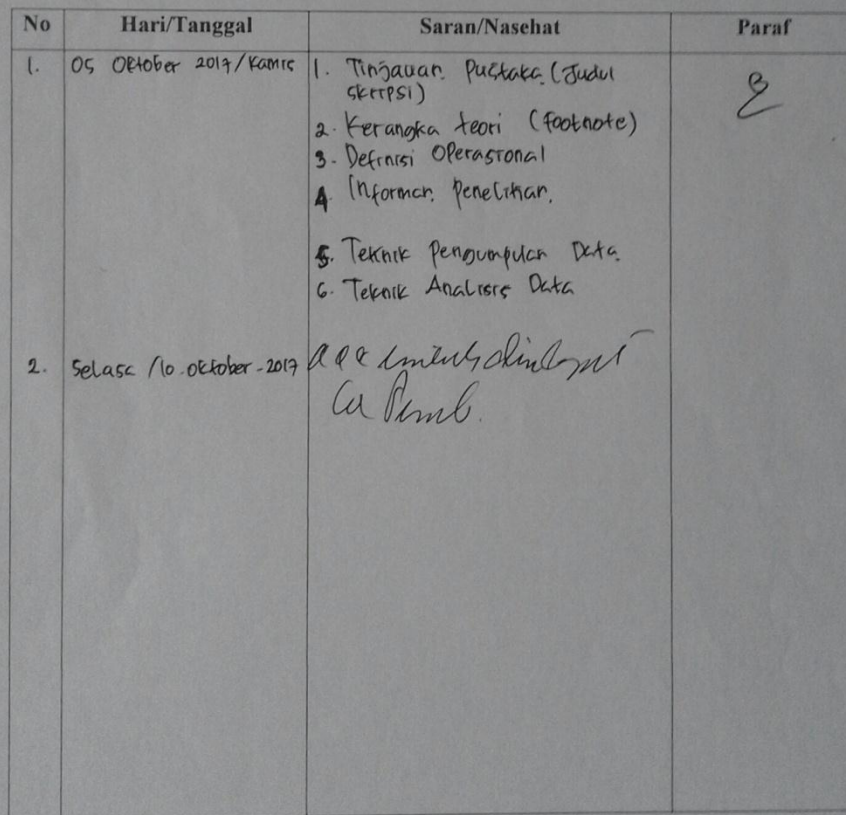 No Hari/Tanggal Saran/Nasehat Paraf
1. 05 Oktober 2017/Kamis 1. Tinjauan Pustaka (Judul
skripsi)
2. Kerangka teori (footnote)
3. Definisi Operasional
4. Informan Penelitian.
5. Teknik Pengumpulan Data.
6. Teknik Analisis Data
2. Selasa /10.oktober-2017 acc